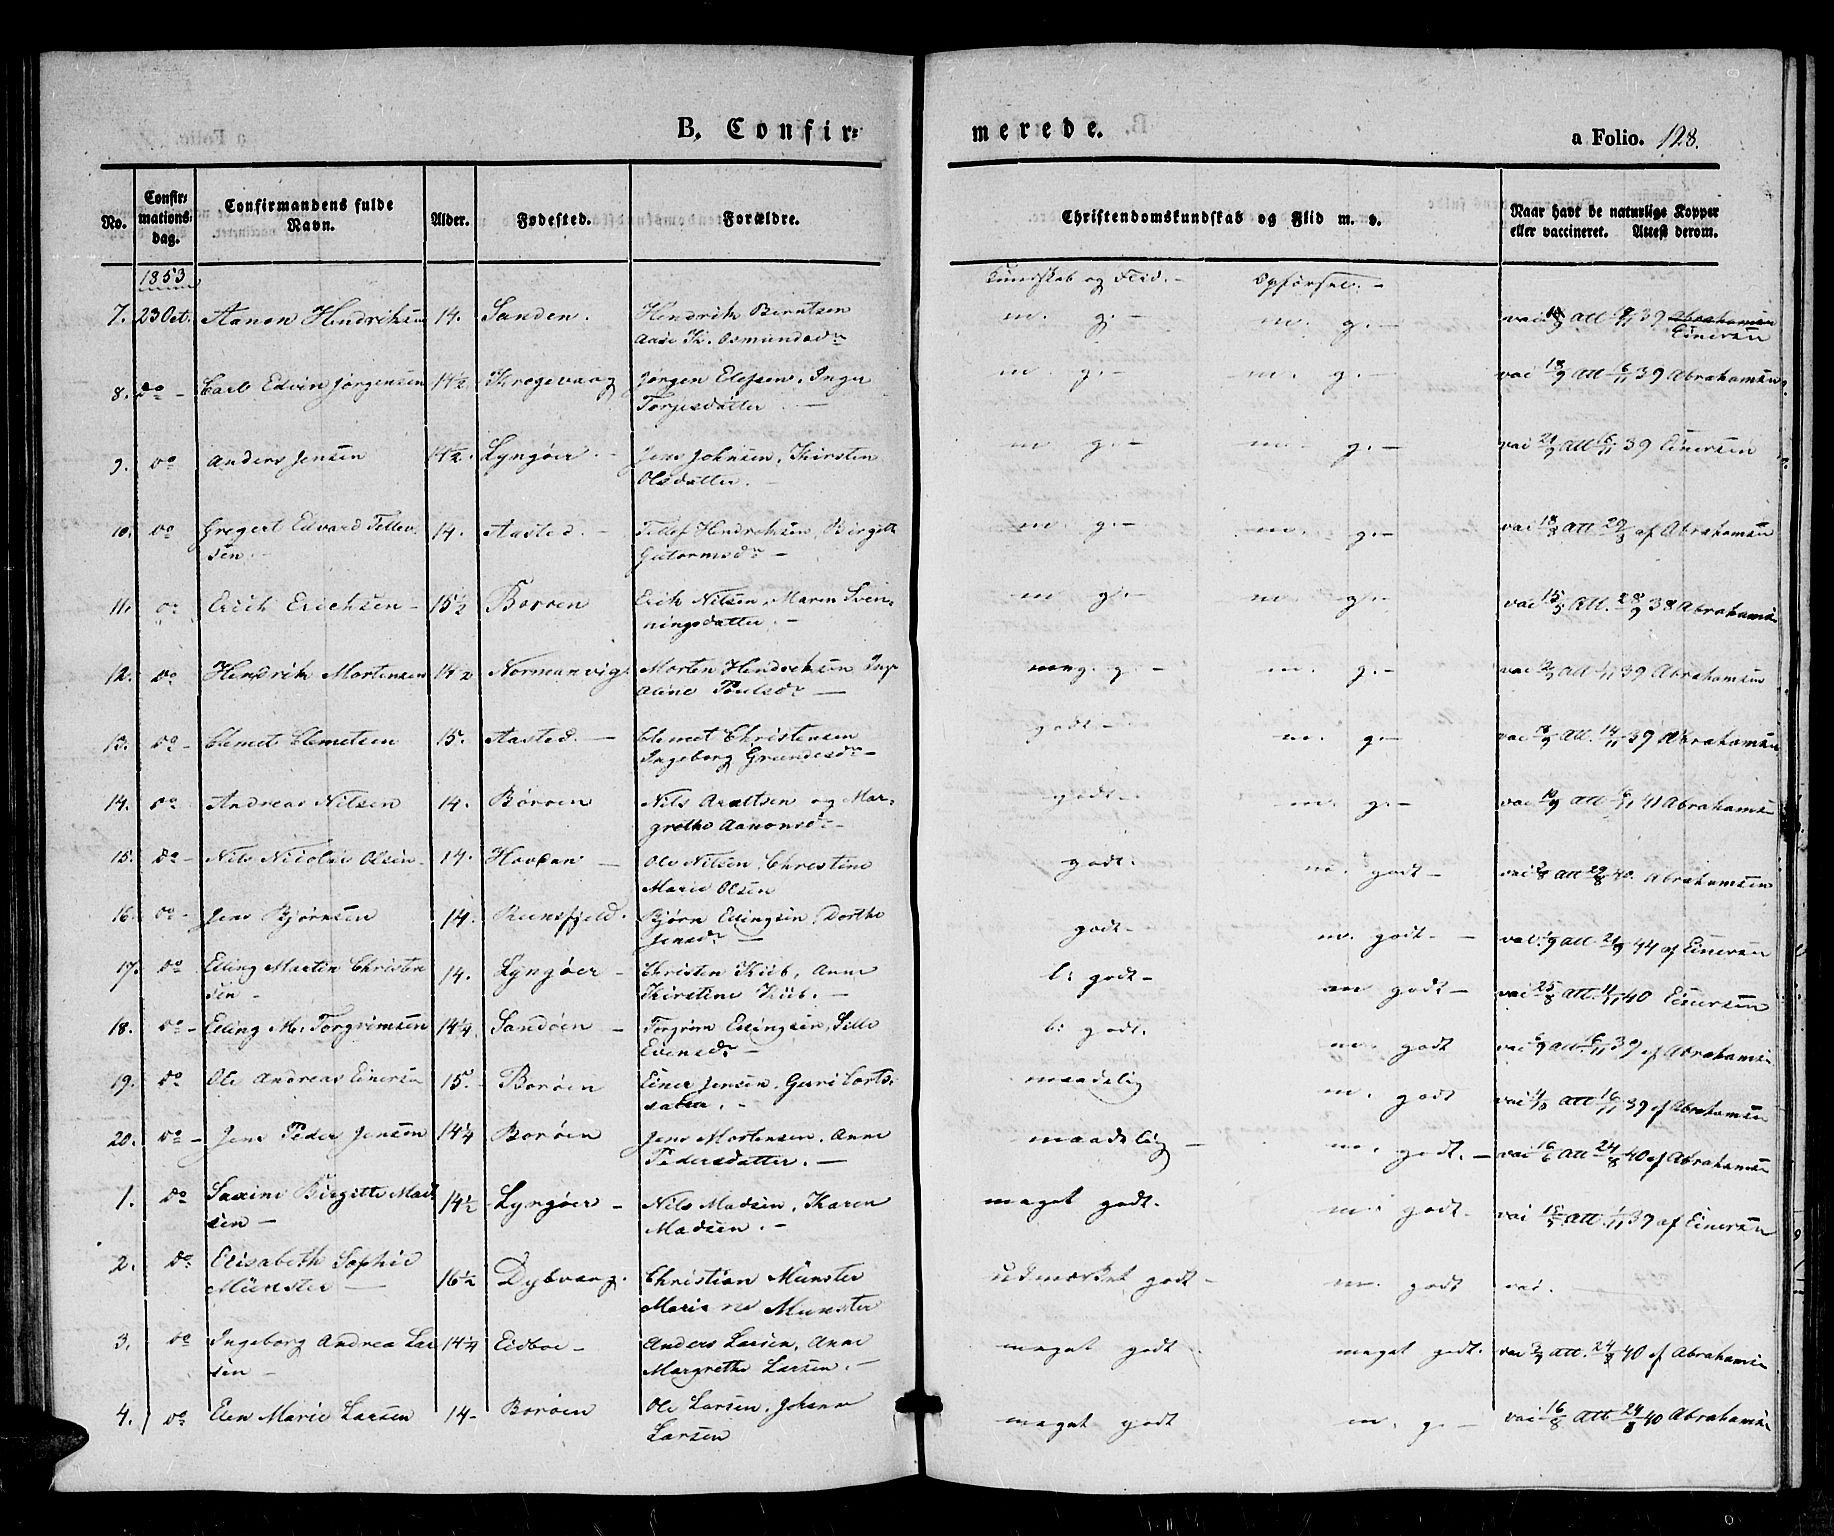 B. Confir=
merede.
a Folio. 128.
No.
Confir=
mations=
dag.
Confirmandens fulde
Navn.
Alder.
Fødested.
Forældre.
Christendomskundskab og Flid m. v.
Naar havt de naturlige Kopper
eller vaccineret. Attest derom.
1853
Kundskab og Flid. — Opførsel. —
7. 23 Oct. Aanon Hendriksen 14. Sanden. Hendrik Berntsen
Aase K. Osmundsdr
m. g. — m. g. — Einersen
8. do — Carl Edvin Jørgensen 14½ Kregevaag Jørgen Elefsen, Inger
Torjusdatter —
m. g. — m. g. — vac 18/9 Att 6/11 39 Abrahamsen
9. do Anders Jensen 14½. Lyngøer. — Jens Johnsen, Kirsten
Olsdatter. —
m. g. — m. g. — vac 21/9 Att 16/11 39 Einersen
10. do Gregert Edvard Tellev
sen. — 14. Aasted. — Tellef Hendrichsen, Birgitte
Gutormsdr —
m. g. — m. g. — vac 18/8 Att 29/8 af Abrahamsen
11. do Erich Erichsen — 15½ Borøen Erik Nilsen, Maren Sven-
ningsdatter. —
m g. — m. g. — vac 15/5 Att. 28/9 38 Abrahamsen
12. do Hendrik Mortensen 14½ Normanvig Morten Hendrichsen Ing
aline Poulsdr —
meg. g. — m. g. — Abrahamsen
13. do — Clemet Clemetsen 15. Aasted. — Clemet Christensen
Ingeborg Grundesdr —
godt. — m. g. — vac 18/9 Att. 14/11 39 Abrahamsen
14. do Andreas Nilsen 14. Børøen Nils Araltsen og Mar-
grethe Aanonsdr —
godt. — m. g. — Abrahamsen
15. do — Nils Nicolai Olsen — 14. Hovdan — Ole Nilsen, Christine
Marie Olsen
godt. m. godt — Abrahamsen
16. do — Jens Bjørnsen 14. Reinsfjeld. Bjørn Ellingsen, Dorthe
Jensdr —
godt — m. godt — 44 af Einersen
17. do Elling Martin Christen
sen — 14. Lyngøer — Christen Kiib, Anne
Kirstine Kiib. —
l: godt — m godt — vac 25/8 Att. 40 Einersen
18. do — Elling M. Torgrimsen 14¼. Sandøen — Torgrim Ellingsen, Sille
Evensdr —
l: godt. m. godt vac 6/9 att. 16/11 39 af Abrahamsen
19. do Ole Andreas Einersen 15. Borøen Einer Jensen, Guri
datter. —
maadelig m. godt Att 16/11 39 af Abrahamsen
20. do — Jens Peder Jensen 14¼ Borøen Jens Mortensen, Anne
Pedersdatter. —
maadelig — m. godt. — vac 16/6 Att 24/8 40 af Abrahamsen
1. do Saxine Birgitte Mad
sen — 14½ Lyngøer — Nils Madsen, Karen
Madsen. —
meget godt. m: godt — Att 1/11 39 af Einersen
2. do Elisabeth Sophie
Münster — 16½ Dybvaag. Christian Münster
Marie Münster
udmærket godt — m. godt vac.
3. do Ingeborg Andrea Lar
sen — 14¼ Eidboe — Anders Larsen, Anne
Margrethe Larsen. —
meget godt meget godt. vac 2/9 att. 24/8 40 af Abrahamsen
4. do Elen Marie Larsen 14 — Borøen Ole Larsen, Johanne
Larsen
meget godt m. g — vac 16/8 Att 24/8 40 Abrahamsen